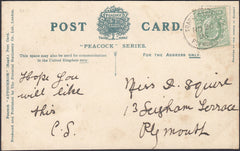 POST CARD.
"PEACOCK" SERIES.
This space may also be used for communication
in the United Kingdom only
FOR THE ADDRESS ONLY
Hope you
will like
this
C.S.
Miss D. Squire
13 Seigham Terrace
Plymouth